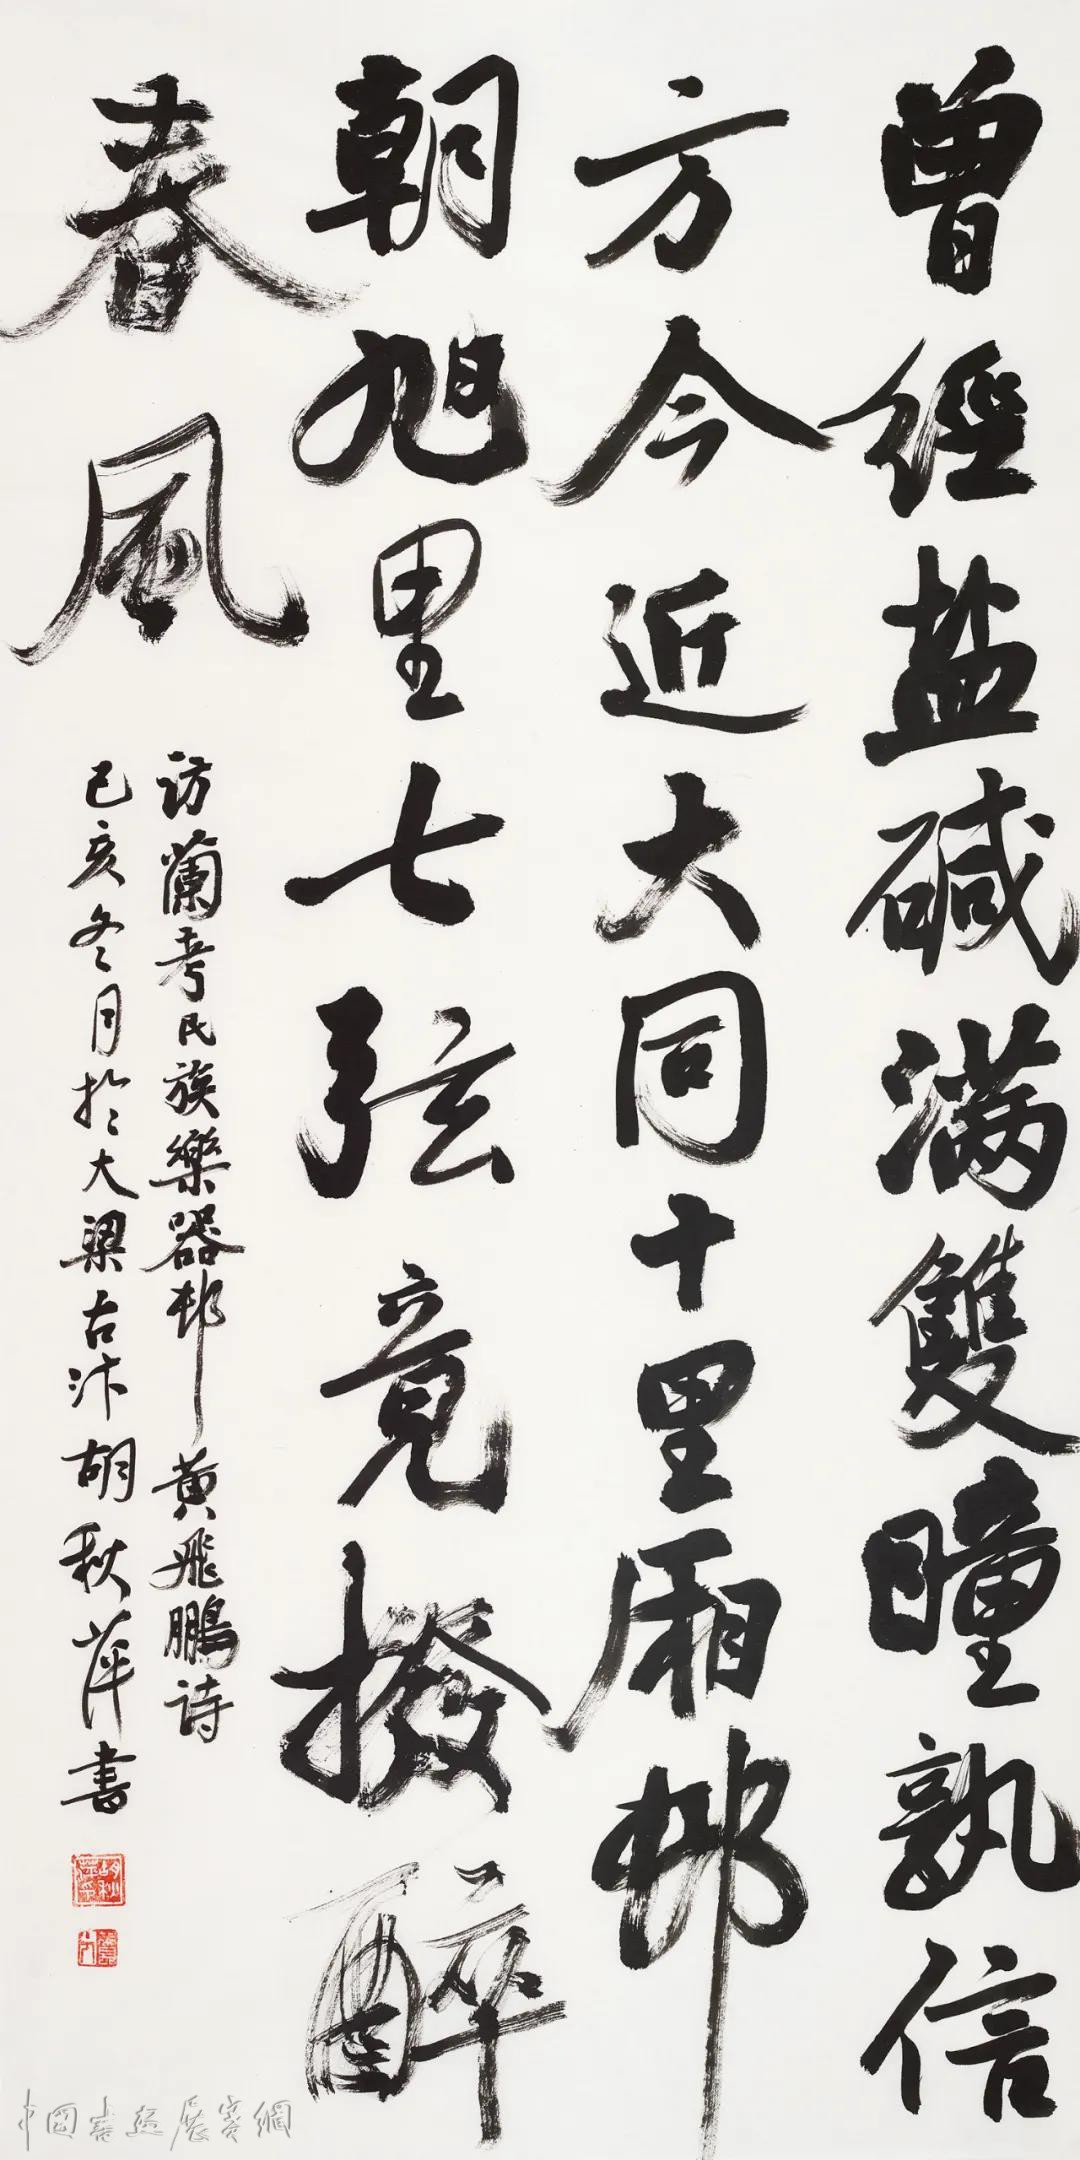 曾經盐碱满雙瞳孰信
方今近大同十里厢邨
朝旭里七弦竟撥醉
春風
访蘭考民族樂器邨 黄飛鵬诗
己亥冬月於大梁古汴胡秋萍書
中國書畫展賽網